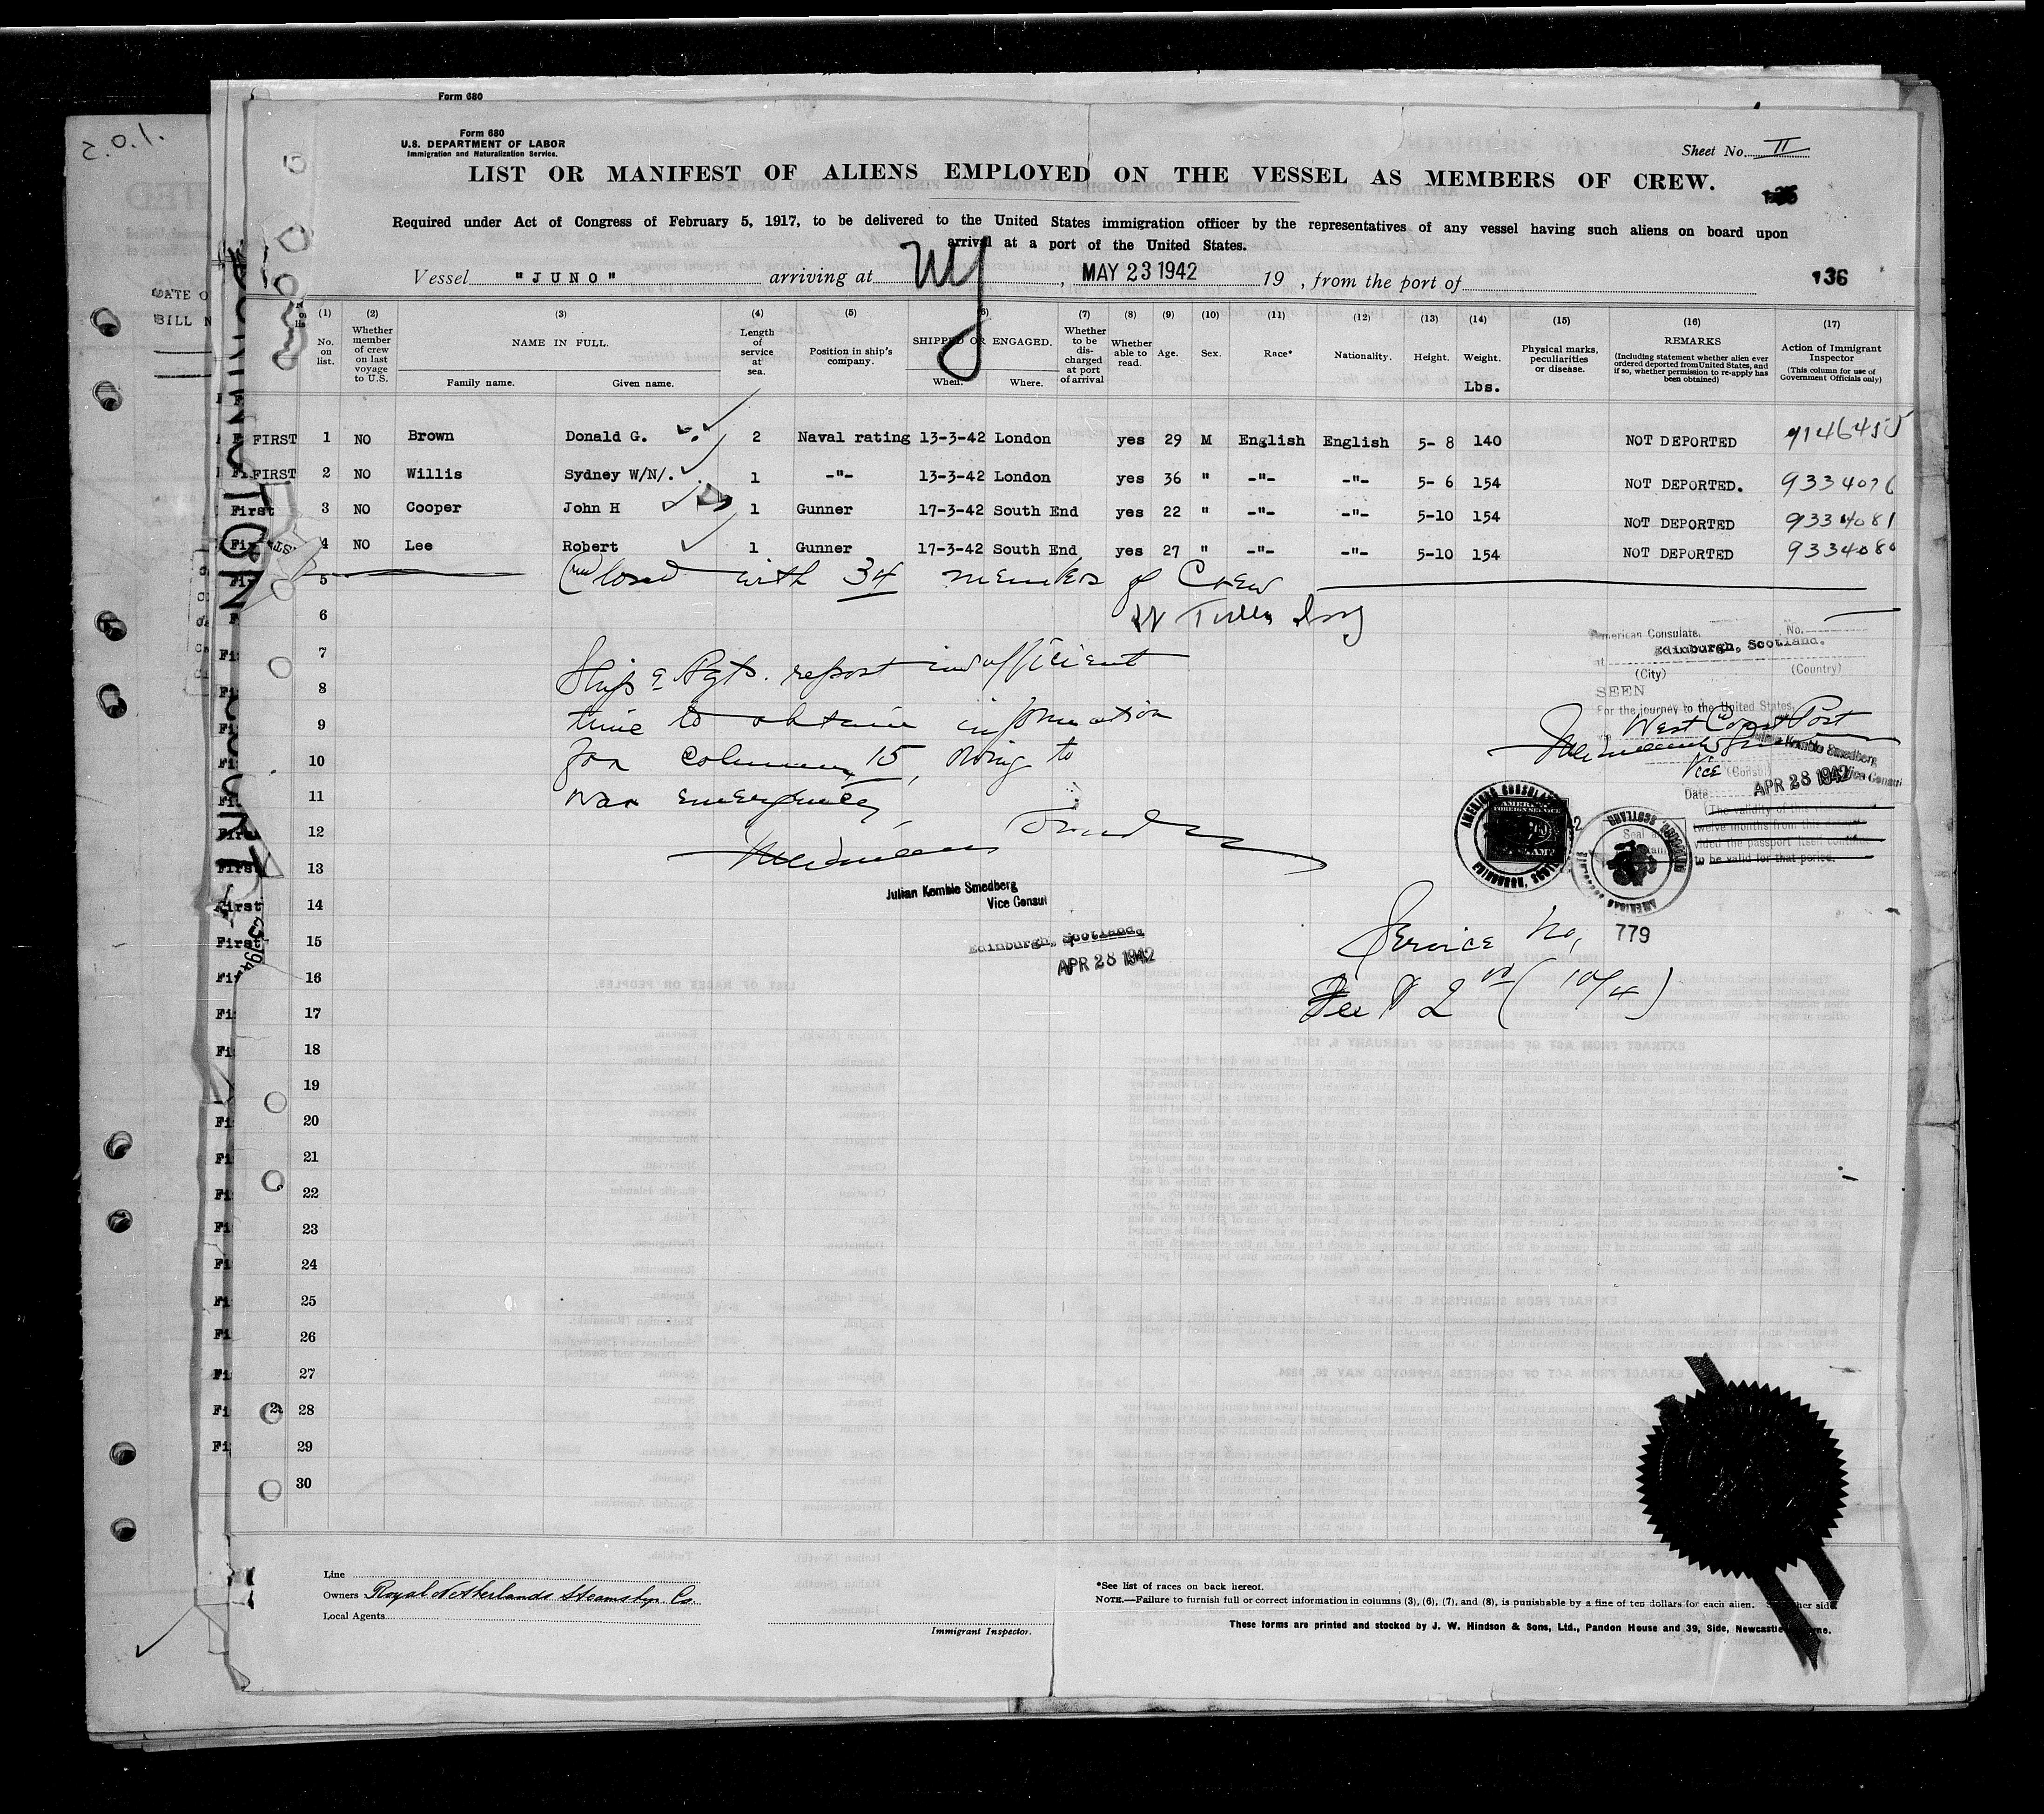 Form 680
2.0.1.
Form 680
U.S. DEPARTMENT OF LABOR
Immigration and Naturalization Service.
Sheet No. II
LIST OR MANIFEST OF ALIENS EMPLOYED ON THE VESSEL AS MEMBERS OF CREW.
Required under Act of Congress of February 5, 1917, to be delivered to the United States immigration officer by the representatives of any vessel having such aliens on board upon
arrival at a port of the United States.
Vessel "JUNO" arriving at NY, MAY 23 1942 19 , from the port of
136
(1) (2) (3) (4) (5) (6) (7) (8) (9) (10) (11) (12) (13) (14) (15) (16) (17)
No. on list.
Whether member of crew on last voyage to U.S.
NAME IN FULL.
Family name. Given name.
Length of service at sea.
Position in ship's company.
SHIPPED OR ENGAGED.
When. Where.
Whether to be discharged at port of arrival
Whether able to read.
Age. Sex. Race* Nationality. Height. Weight. Lbs.
Physical marks, peculiarities or disease.
REMARKS
(Including statement whether alien ever ordered deported from United States, and if so, whether permission to re-apply has been obtained)
Action of Immigrant Inspector
(This column for use of Government Officials only)
FIRST 1 NO Brown Donald G. 2 Naval rating 13-3-42 London yes 29 M English English 5- 8 140 NOT DEPORTED
FIRST 2 NO Willis Sydney W/N/. 1 -"- 13-3-42 London yes 36 " -"- -"- 5- 6 154 NOT DEPORTED. 9334076
First 3 NO Cooper John H 1 Gunner 17-3-42 South End yes 22 " -"- -"- 5-10 154 NOT DEPORTED 9334081
4 NO Lee Robert 1 Gunner 17-3-42 South End yes 27 " -"- -"- 5-10 154 NOT DEPORTED 9334080
5 Closed with 34 members of Crew
6
7 Ship & Agts. report insufficient
8
9 time to obtain information
10 for column 15, owing to
11 war emergency
12
13
Julian Kemble Smedberg
Vice Consul
14
15
Edinburgh, Scotland,
APR 28 1942
16
17
18
19
20
21
22
23
24
25
26
27
28
29
30
American Consulate. No.
at Edinburgh, Scotland.
(City) (Country)
SEEN
For the journey to the United States.
via West Coast Port
Julian Kemble Smedberg
Vice (Consul) Vice Consul
Date APR 28 1942
(The validity of this
twelve months from this
vided the passport itself continues
to be valid for that period.
Service No, 779
Fee $ 2 00 (10/4)
Line
Owners Royal Netherlands Steamship Co
Local Agents
Immigrant Inspector.
*See list of races on back hereof.
NOTE.—Failure to furnish full or correct information in columns (3), (6), (7), and (8), is punishable by a fine of ten dollars for each alien.
These forms are printed and stocked by J. W. Hindson & Sons, Ltd., Pandon House and 39, Side, Newcastle